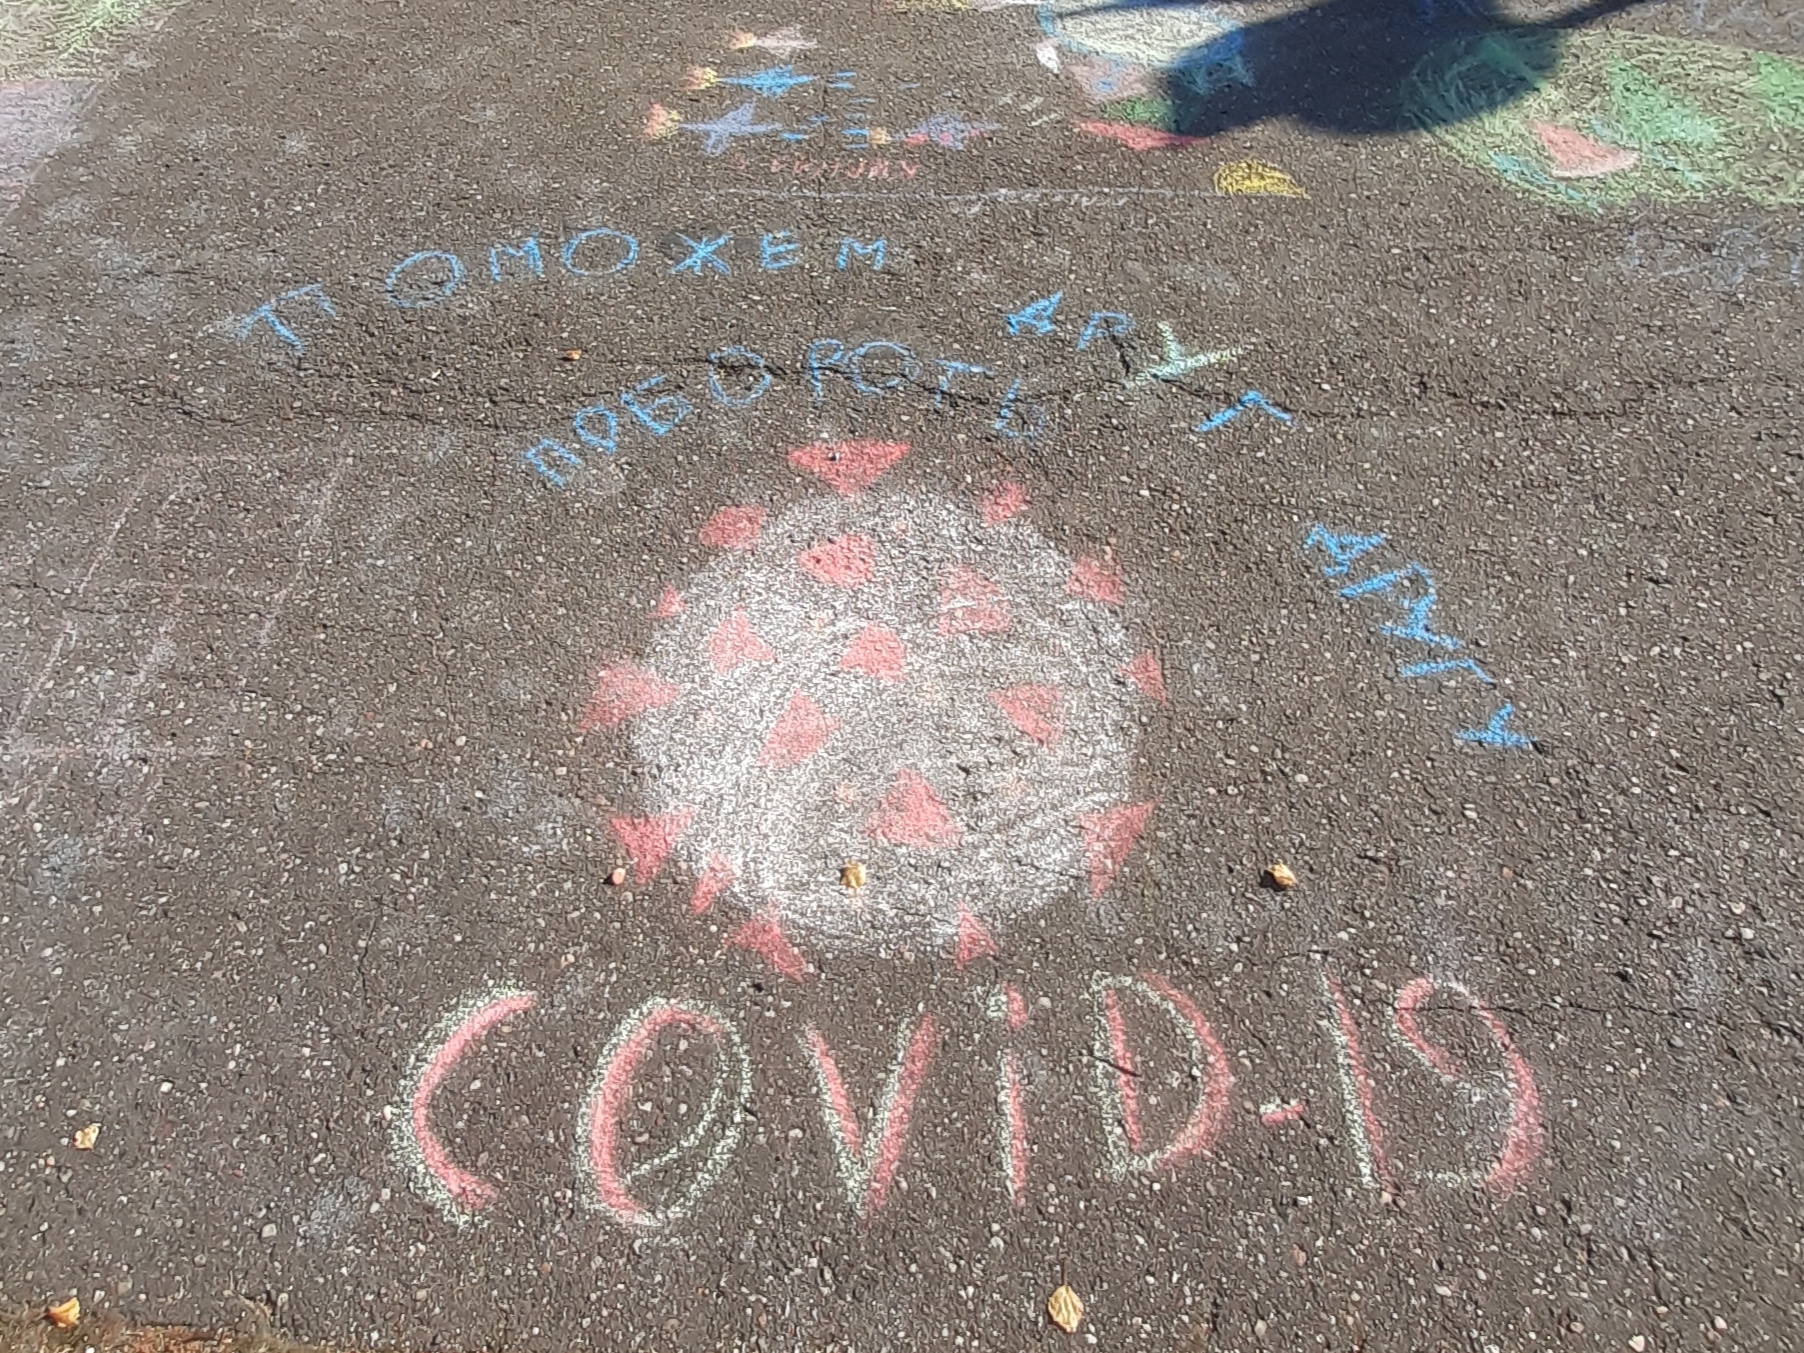 ПОМОЖЕМ
ПОБОРОТЬ
ДРУГ
ДРУГУ
COViD-19